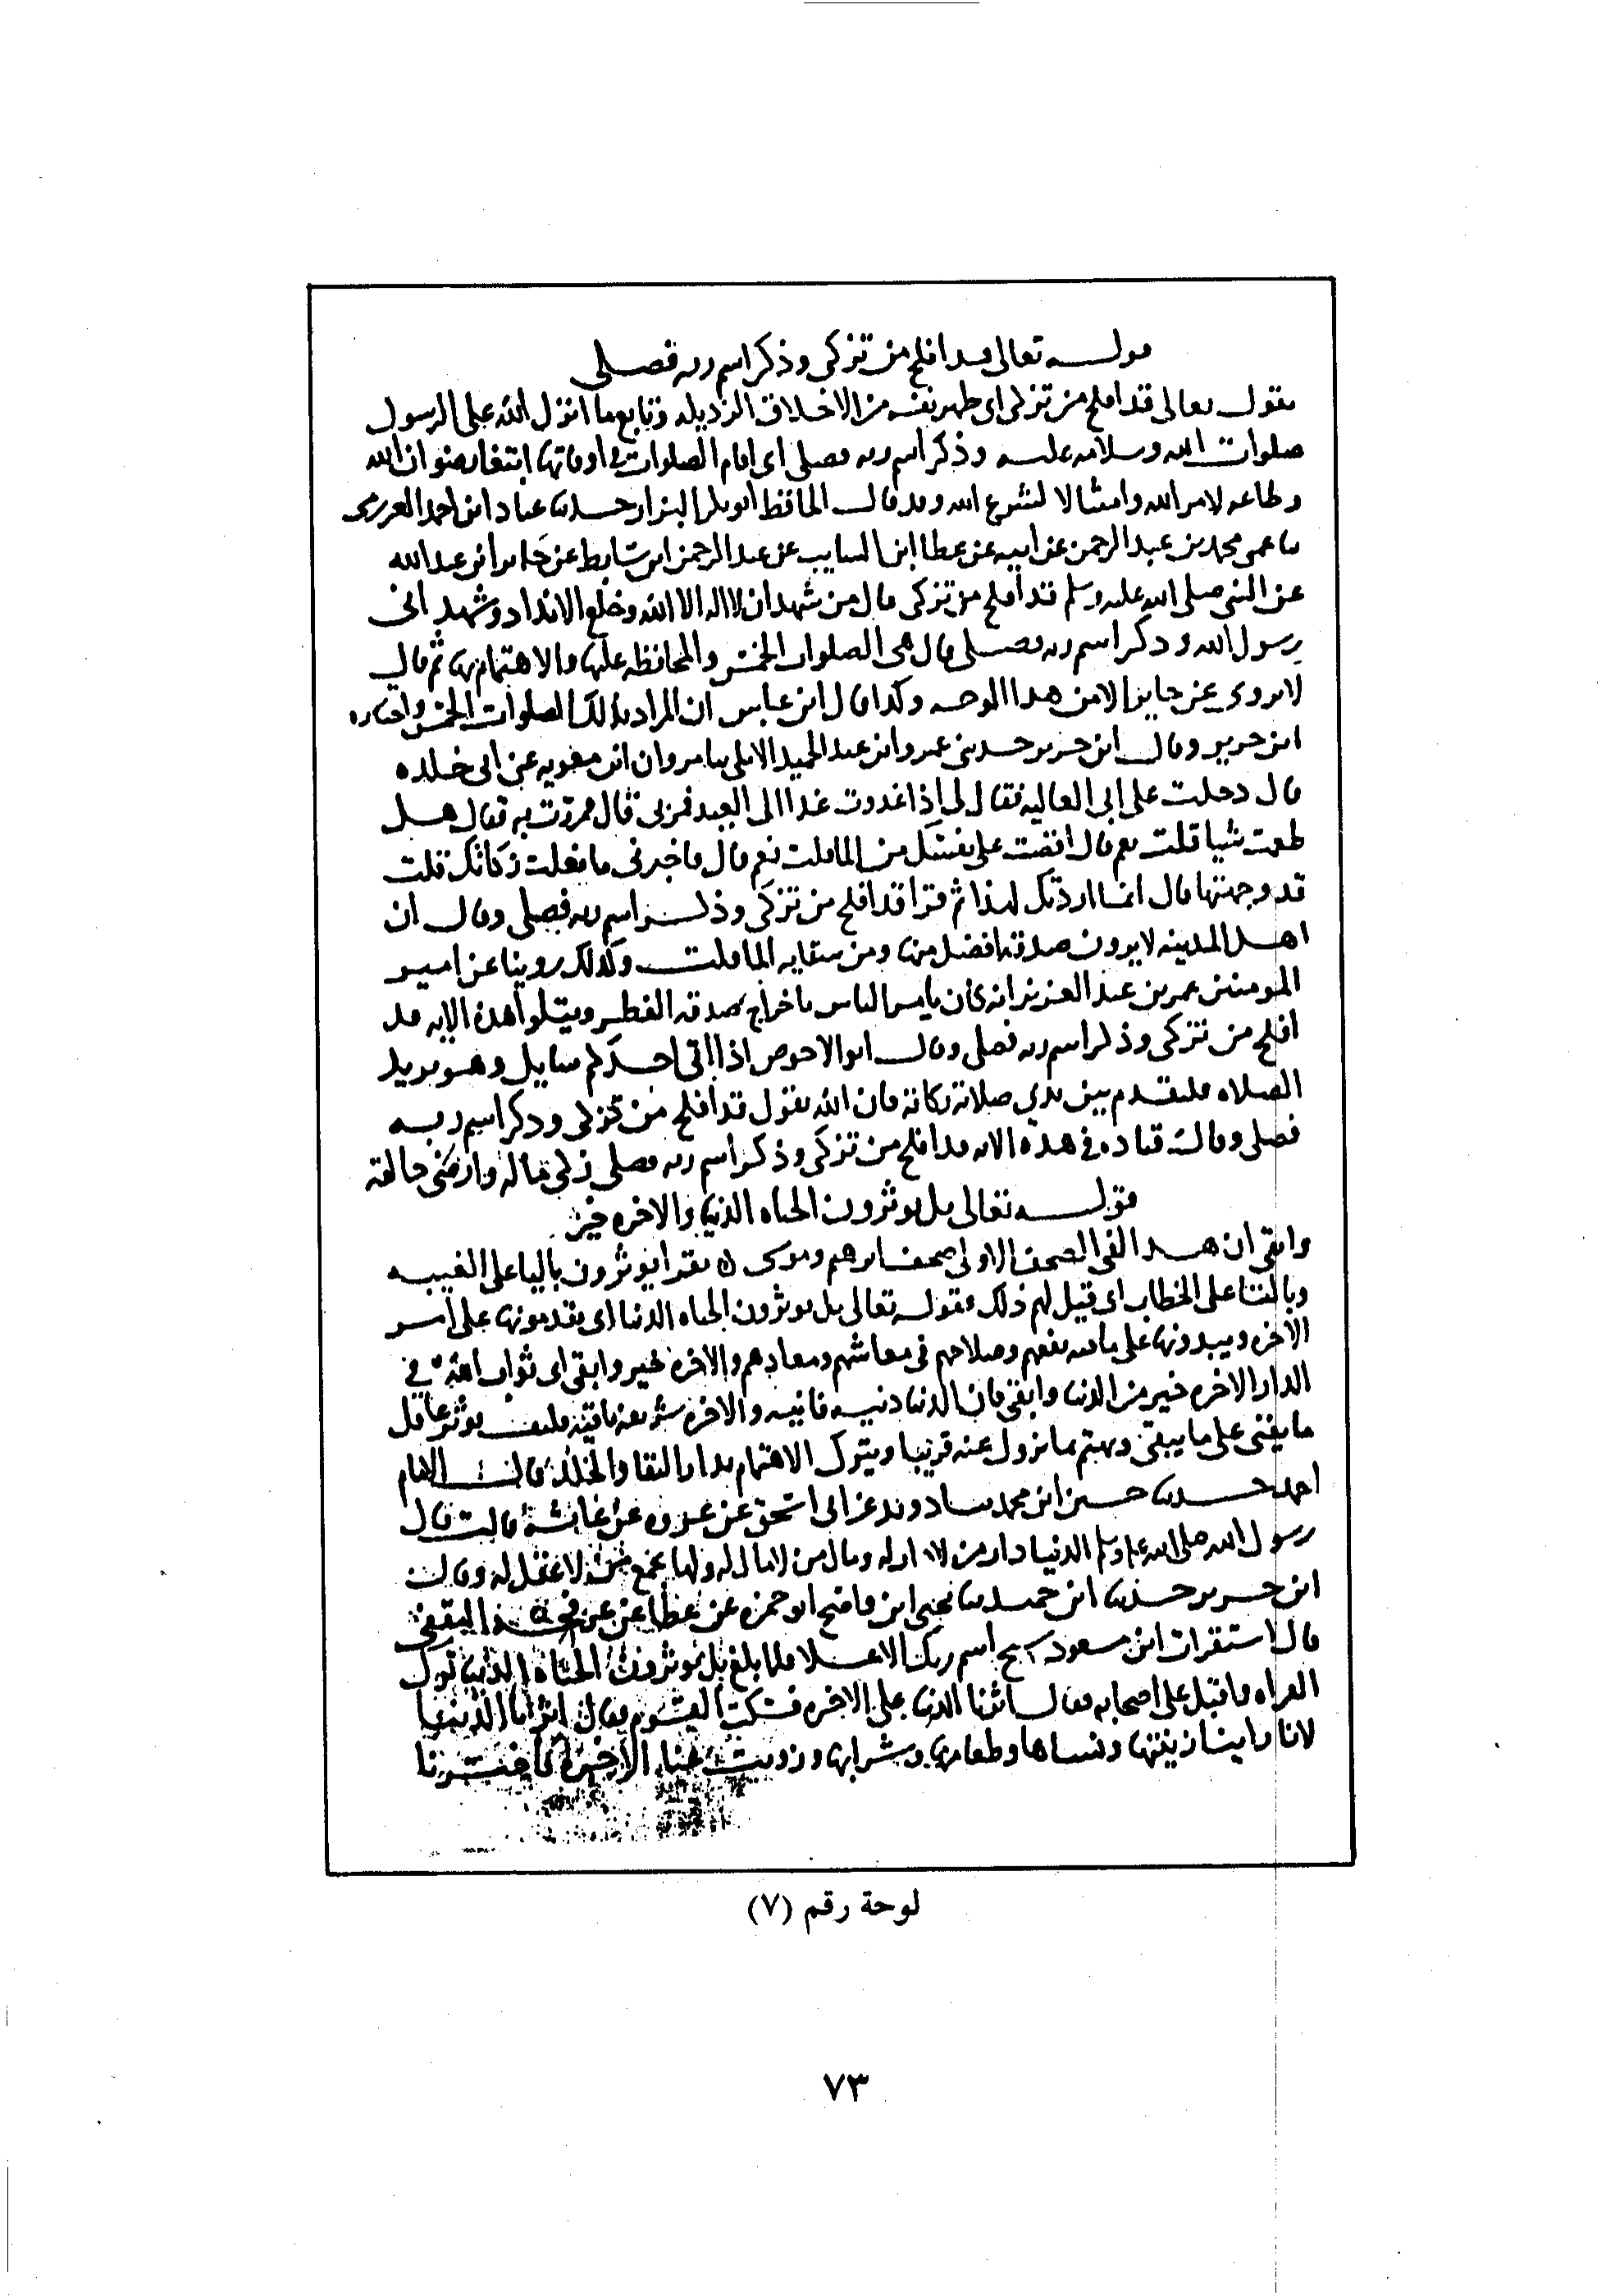 قولـــه تعالى قد افلح من تزكى وذكر اسم ربه فصلى
يقول تعالى قد افلح من تزكى اى طهر نفسه من الاخلاق الرذيله وتابع ما انزل الله على الرسول
صلوات الله وسلامه عليه وذكر اسم ربه فصلى اى اقام الصلوات فى اوقاتها ابتغا رضوان الله
وطاعه لامر الله وامتثالا لشرع الله وقد قال الحافظ ابو بكر البزار حدثنا عباد ابن احمد العرزمى
ثنا عمى محمد بن عبد الرحمن عن ابيه عن عطا ابن السايب عن عبد الرحمن ابن سابط عن جابر ابن عبد الله
عن النبى صلى الله عليه وسلم قد افلح من تزكى قال من شهد ان لا اله الا الله وخلع الانداد وشهد انى
رسول الله وذكر اسم ربه فصلى قال هى الصلوات الخمس والمحافظه عليها والاهتمام بها ثم قال
لا يروى عن جابر الا من هذا الوجه وكذا قال ابن عباس ان المراد بذلك الصلوات الخمس واختاره
ابن جرير وقال ابن جرير حدثنى عمرو ابن عبد الحميد الابلى ثنا مروان ابن معويه عن ابى خلده
قال دخلت على ابى العاليه فقال لى اذا غدوت غدا الى العيد فمر بى قال فمررت به فقال هل
طعمت شيا قلت نعم قال افضت على نفسك من الما قلت نعم قال فاخبرنى ما فعلت زكاتك قلت
قد وجهتها قال انما اردتك لهذا ثم قرا قد افلح من تزكى وذكر اسم ربه فصلى وقال ان
اهل المدينه لا يرون صدقه افضل منها ومن سقايه الما قلت وكذلك روينا عن امير
المومنين عمر بن عبد العزيز انه كان يامر الناس باخراج صدقه الفطر ويتلوا هذه الايه قد
افلح من تزكى وذكر اسم ربه فصلى وقال ابو الاحوص اذا اتى احدكم سايل وهو يريد
الصلاه فليقدم بين يدي صلاته زكاته فان الله يقول قد افلح من تزكى وذكر اسم ربه
فصلى وقال قتاده فى هذه الايه قد افلح من تزكى وذكر اسم ربه فصلى زكى ماله وارضى خالقه
قولـــه تعالى بل يوثرون الحياه الدنيا والاخره خير
وابقى ان هذا لفى الصحف الاولى صحف ابرهيم وموسى يقرا يوثرون باليا على الغيبه
وبالتا على الخطاب اى قيل لهم ذلك فقوله تعالى بل يوثرون الحياه الدنيا اى يقدمونها على امر
الاخره ويبدونها على ما فيه نفعهم وصلاحهم فى معاشهم ومعادهم والاخره خير وابقى اى ثواب الله فى
الدار الاخره خير من الدنيا وابقى فان الدنيا دنيه فانيه والاخره شريفه باقيه فكيف يوثر عاقل
ما يفنى على ما يبقى ويهتم بما يزول عنه قريبا ويترك الاهتمام بدار البقا والخلد قال الامام
احمد حدثنا حسين ابن محمد ثنا دويد عن ابى اسحق عن عروه عن عائشة قالت قال
رسول الله صلى الله عليه وسلم الدنيا دار من لا دار له ومال من لا مال له ولها يجمع من لا عقل له وقال
ابن جرير حدثنا ابن حميد ثنا يحيى ابن واضح ابو حمزه عن عطا عن عرفجة الثقفى
قال استقرات ابن مسعود سبح اسم ربك الاعلا فلما بلغ بل يوثرون الحياه الدنيا ترك
القراه واقبل على اصحابه فقال اثرنا الدنيا على الاخره فسكت القوم فقال اثرنا الدنيا
لانا راينا زينتها ونساها وطعامها وشرابها وزويت عنا الاخرة فاخترنا
لوحة رقم (٧)
٧٣